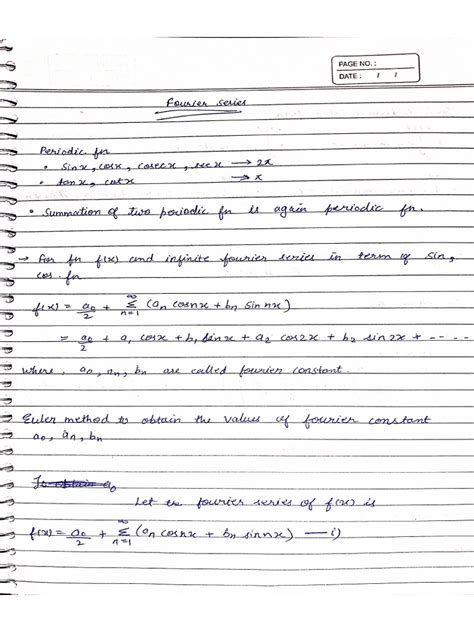 PAGE NO. :
DATE : / /
Fourier series
Periodic fn
• Sinx, cosx, cosecx, secx → 2π
• tanx, cotx → π
• Summation of two periodic fn is again periodic fn.
→ For fn f(x) and infinite fourier series in term of sin,
cos fn
f(x) = a₀/2 + ∞Σn=1 (an cosnx + bn sin nx)
= a₀/2 + a₁ cosx + b₁ sinx + a₂ cos2x + b₂ sin2x + - - - - -
where, a₀, an, bn are called fourier constant.
Euler method to obtain the values of fourier constant
a₀, an, bn
To obtain a₀
Let the fourier series of f(x) is
f(x) = a₀/2 + ∞Σn=1 (an cosnx + bn sinnx) — i)